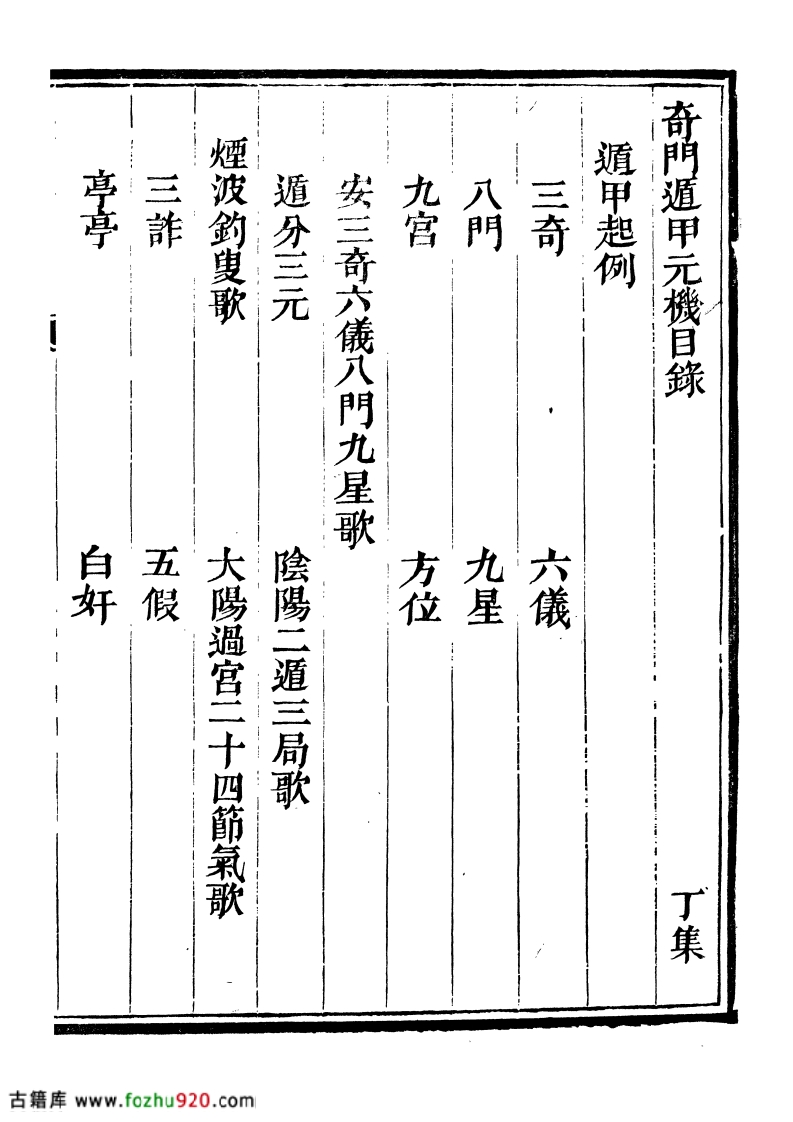 奇門遁甲元機目錄 丁集
遁甲起例
三奇 六儀
八門 九星
九宮 方位
安三奇六儀八門九星歌
遁分三元 陰陽二遁三局歌
煙波釣叟歌 大陽過宮二十四節氣歌
三詐 五假
亭亭 白奸
古籍库 www.fozhu920.com